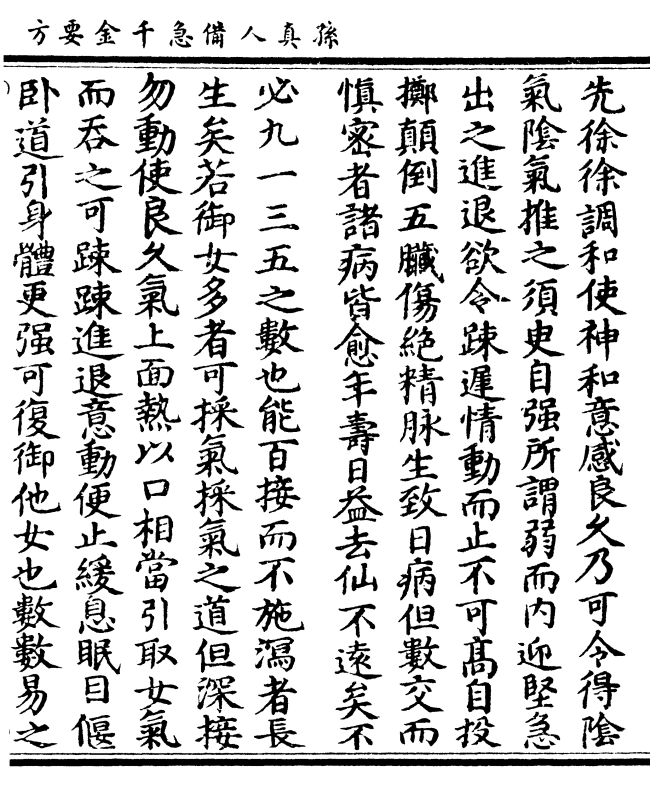 孫真人備急千金要方
先徐徐調和使神和意感良久乃可令得陰
氣陰氣推之須臾自强所謂弱而内迎堅急
出之進退欲令踈遲情動而止不可高自投
擲顛倒五臟傷絶精脉生致日病但數交而
慎密者諸病皆愈年壽日益去仙不遠矣不
必九一三五之數也能百接而不施瀉者長
生矣若御女多者可採氣採氣之道但深接
勿動使良久氣上面熱以口相當引取女氣
而吞之可踈踈進退意動便止緩息眠目偃
卧道引身體更强可復御他女也數數易之